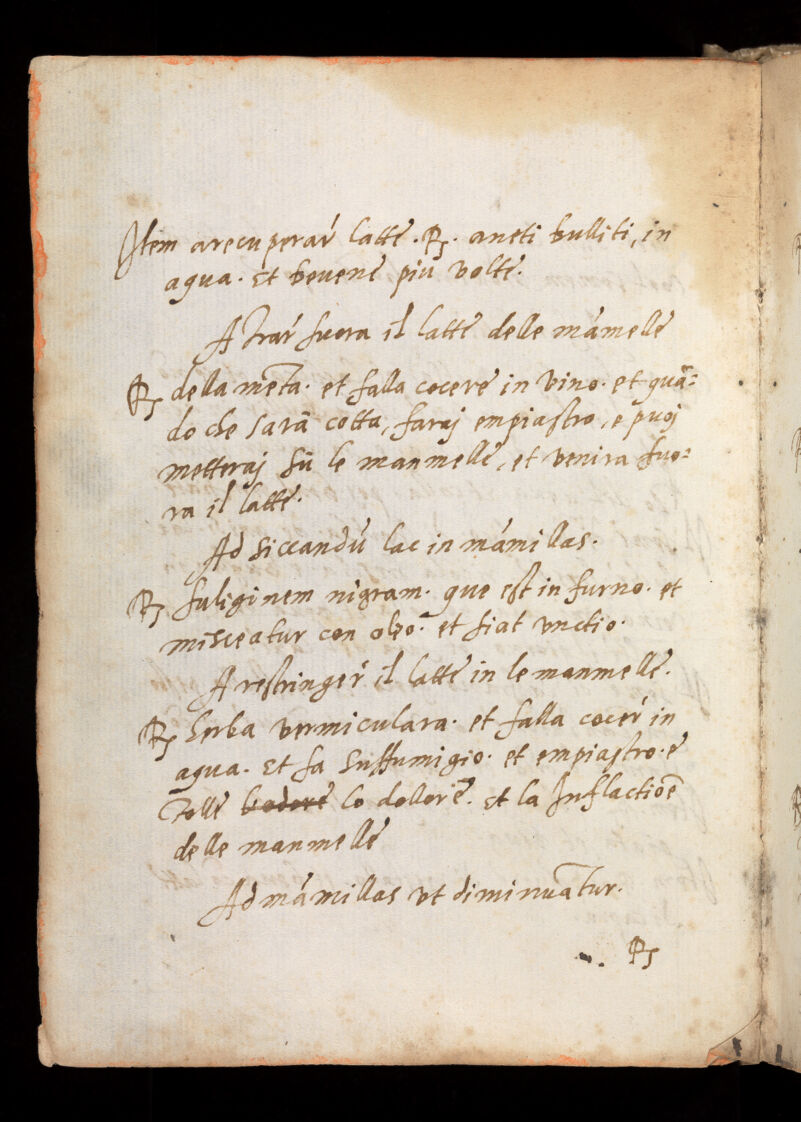 Item arecuperar latte . ℞. aneti bulliti, in
agua. Et bevene piu volte.
A Trar fuora il latte delle mãmelle
℞ della mẽta. et falla cocere in vino. et quã=
do che sarã cotta, faraj empiastro, e puoj
metteraj sũ le manmelle, et venira fuo=
ra il latte.
Ad siccandũ lac in mãmillas.
℞ fuliginem nigram. que est in furno. et
misceatur con oleo. et fiat unctio.
A restringer il latte in le manmelle.
℞ herba vermiculara. et falla cocer in
agua. Et fa suffumigio. et empiastro. e
Tolle lo dollore. Et la Inflactiõe
delle manmelle
Ad mãmillas ut diminuãtur.
℞